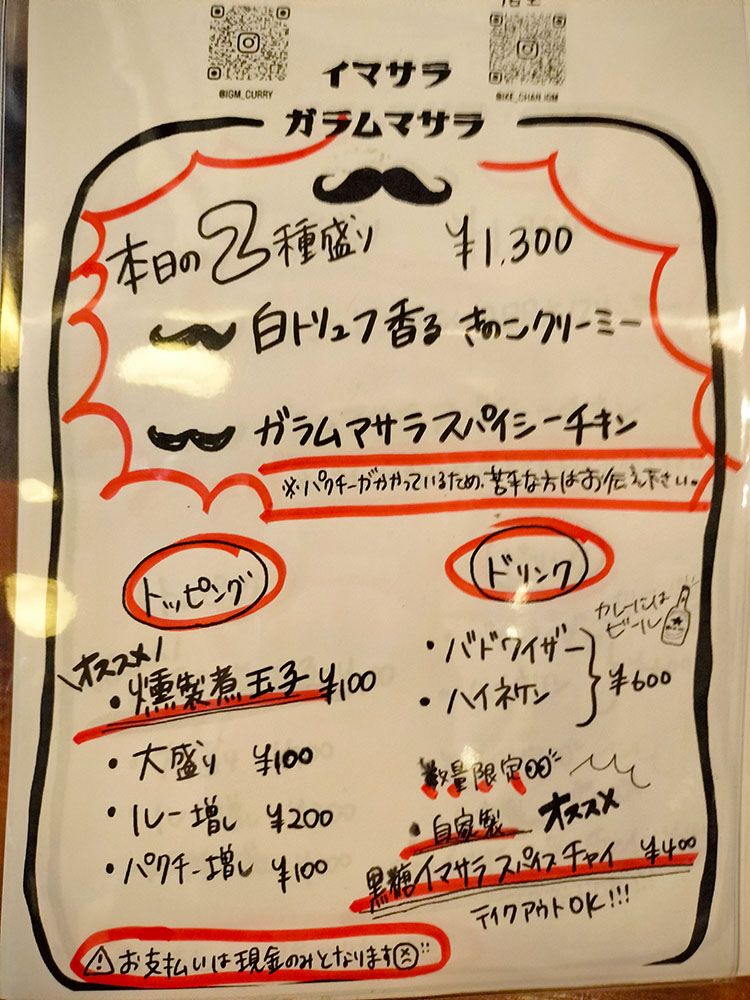 @IGM_CURRY
@IKE_CHAN.IGM
イマサラ
ガラムマサラ
本日の2種盛り ¥1,300
白トリュフ香る きのこクリーミー
ガラムマサラスパイシーチキン
※パクチーがかかっているため、苦手な方はお伝え下さい。
トッピング
\オススメ/
・燻製煮玉子 ¥100
・大盛り ¥100
・ルー増し ¥200
・パクチー増し ¥100
ドリンク
カレーには
ビール
・バドワイザー
・ハイネケン
¥600
数量限定
・自家製 オススメ
黒糖イマサラスパイスチャイ ¥400
テイクアウトOK!!!
⚠お支払いは現金のみとなります